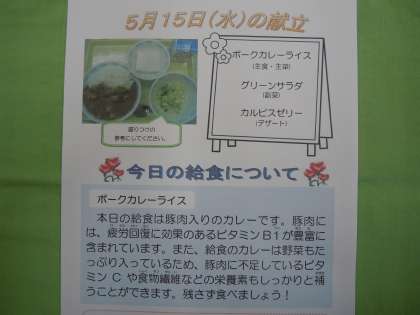 5月15日(水)の献立
ポークカレーライス
(主食・主菜)
グリーンサラダ
(副菜)
カルピスゼリー
(デザート)
盛りつけの
参考にしてください。
今日の給食について
ポークカレーライス
本日の給食は豚肉入りのカレーです。豚肉に
は、疲労回復に効果のあるビタミンB1が豊富に
含まれています。また、給食のカレーは野菜もた
っぷり入っているため、豚肉に不足しているビタ
ミン C や食物繊維などの栄養素もしっかりと補
うことができます。残さず食べましょう！